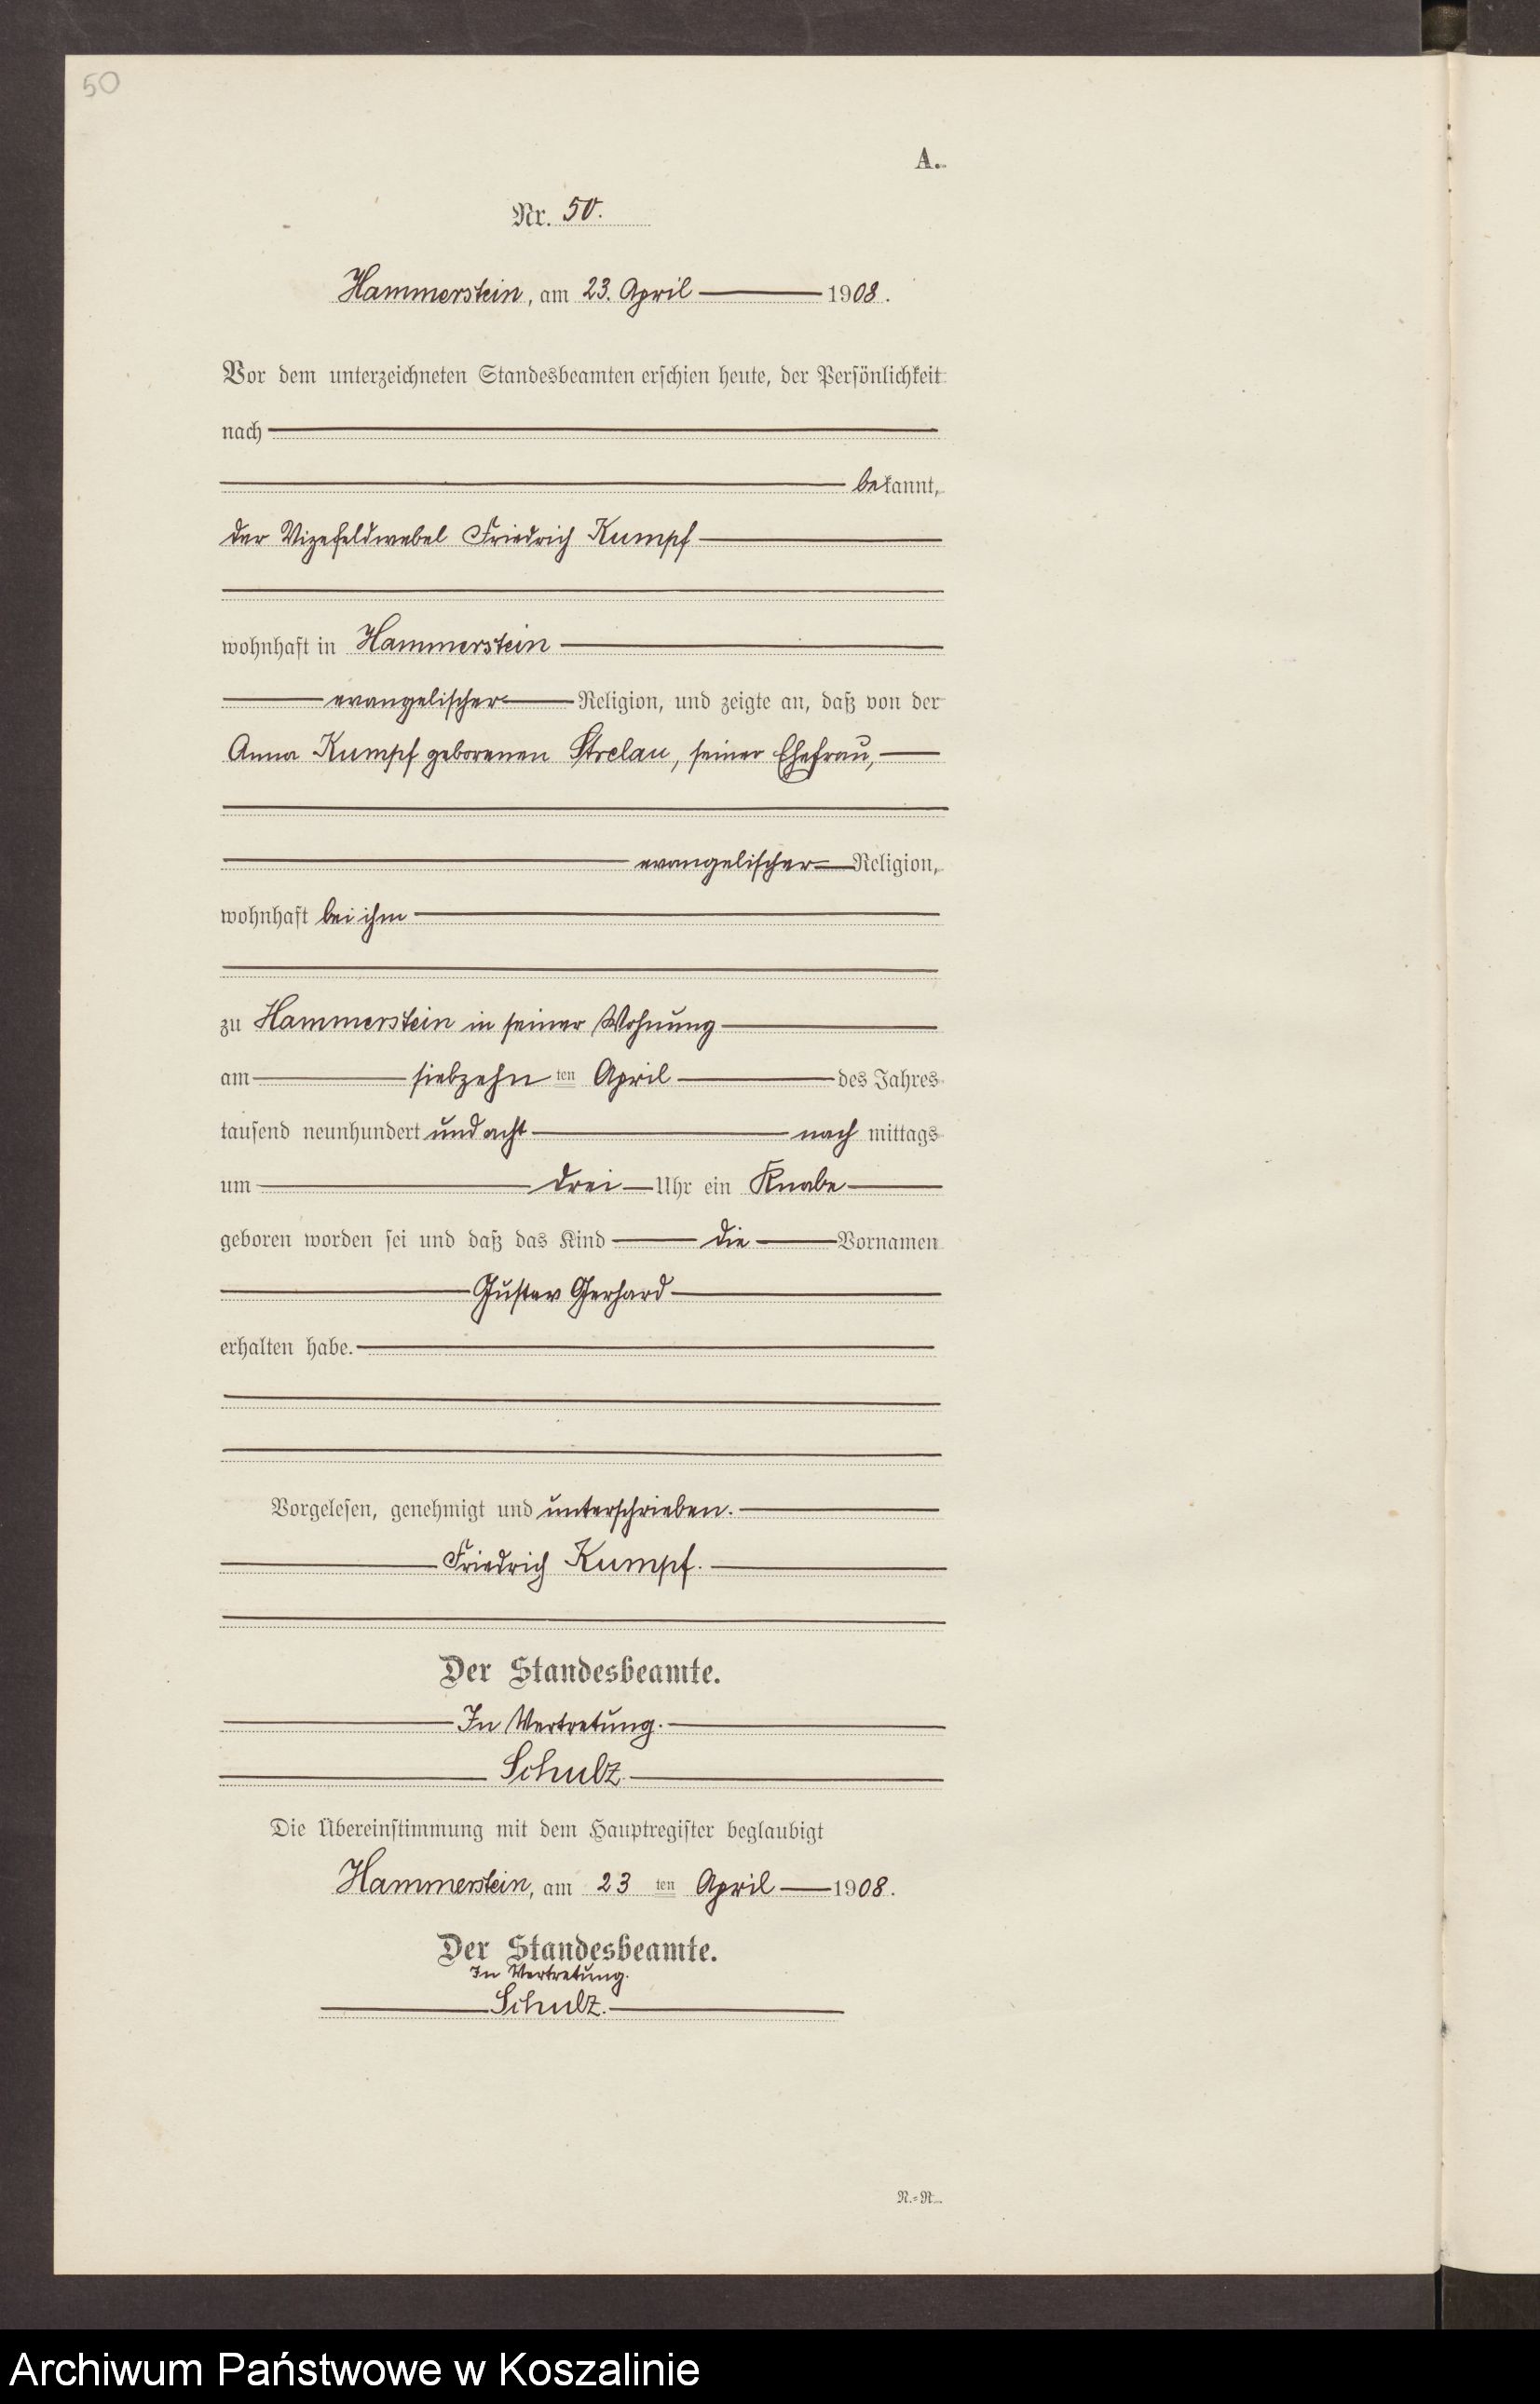 50
A.
Nr. 50.
Hammerstein, am 23. April 1908.
Vor dem unterzeichneten Standesbeamten erschien heute, der Persönlichkeit
nach
bekannt,
der Vizefeldwebel Friedrich Kumpf
wohnhaft in Hammerstein
evangelischer Religion, und zeigte an, daß von der
Anna Kumpf geborenen Strelau, seiner Ehefrau,
evangelischer Religion,
wohnhaft bei ihm
zu Hammerstein in seiner Wohnung
am siebzehn ten April des Jahres
tausend neunhundert und acht nach mittags
um drei Uhr ein Knabe
geboren worden sei und daß das Kind die Vornamen
Gustav Gerhard
erhalten habe.
Vorgelesen, genehmigt und unterschrieben.
Friedrich Kumpf.
Der Standesbeamte.
In Vertretung.
Schulz.
Die Übereinstimmung mit dem Hauptregister beglaubigt
Hammerstein, am 23 ten April 1908.
Der Standesbeamte.
In Vertretung.
Schulz.
N.=R.
Archiwum Państwowe w Koszalinie